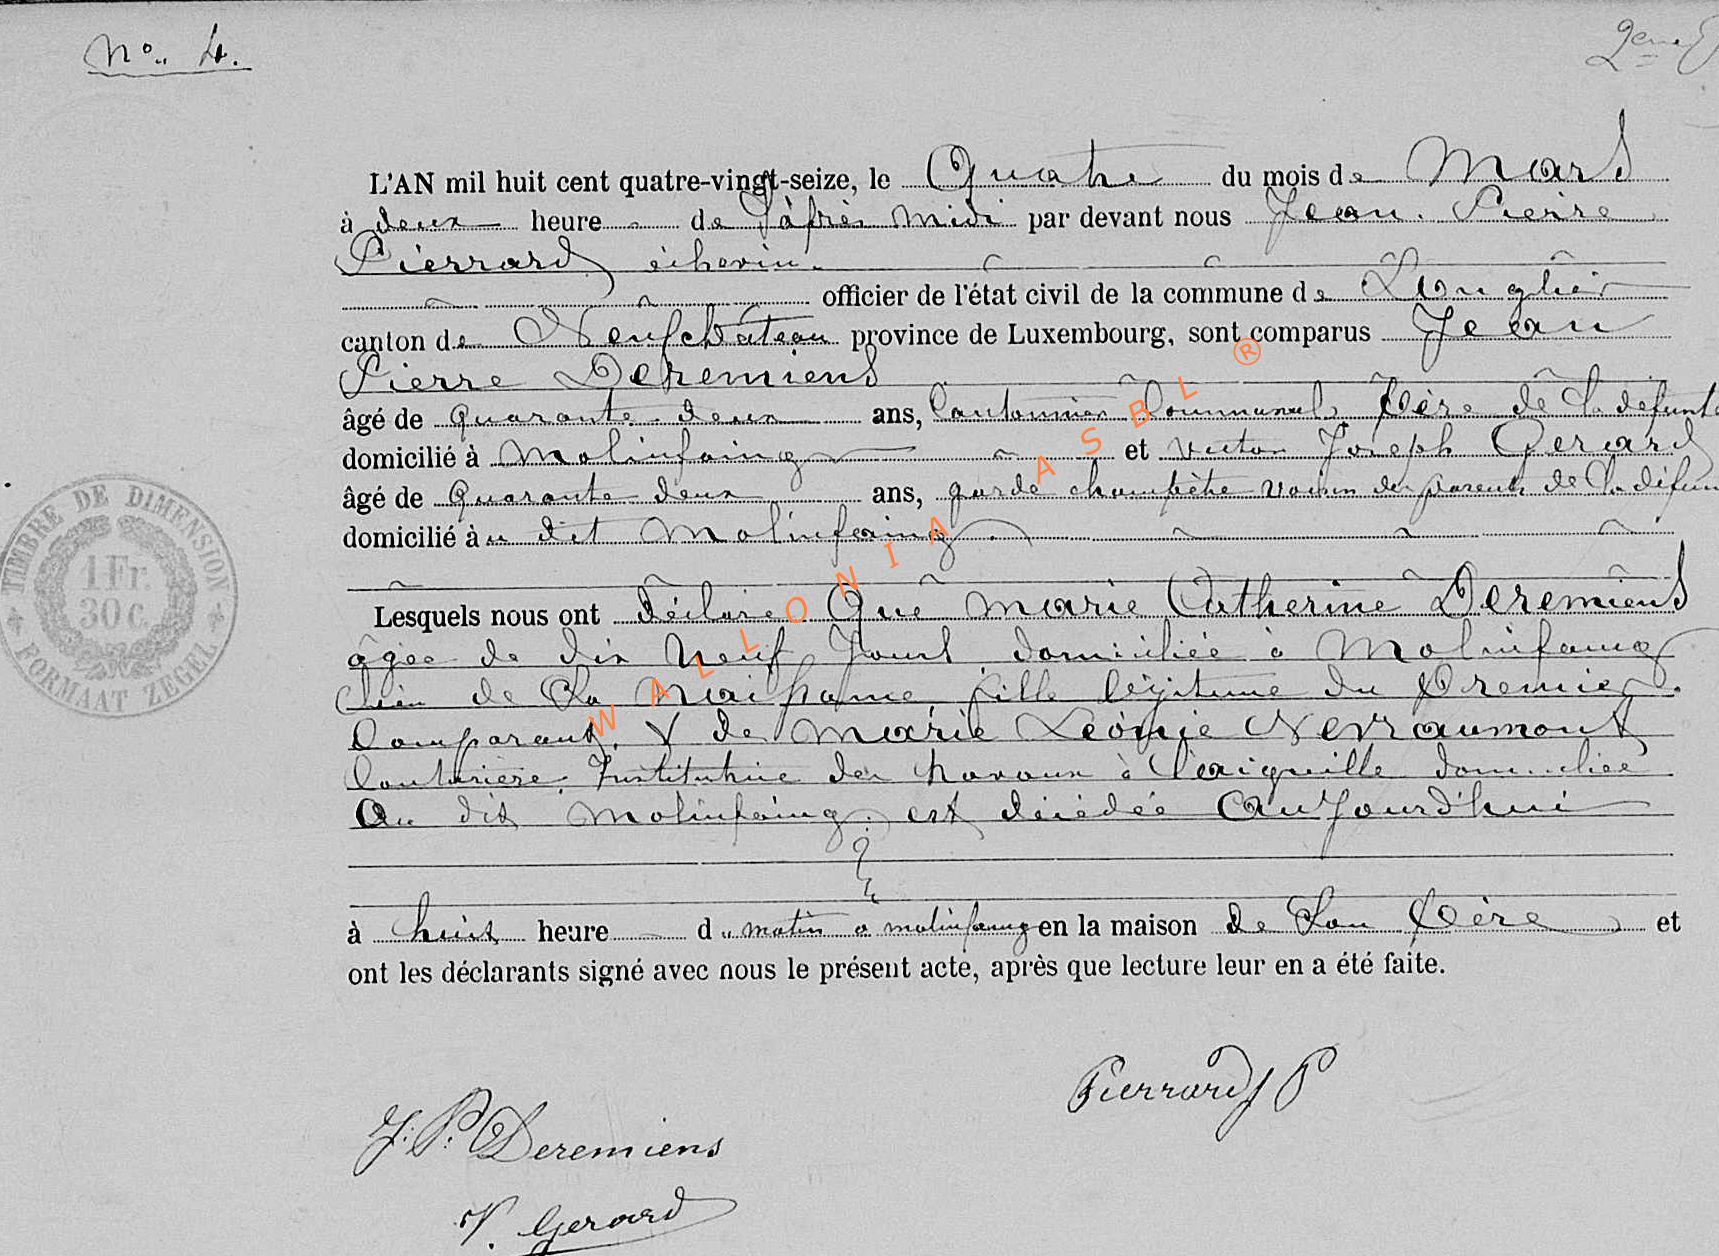 N°. 4.
2eme
L'AN mil huit cent quatre-vingt-seize, le Quatre du mois de Mars
à deux heure de l'après midi par devant nous Jean Pierre
Pierrard échevin
officier de l'état civil de la commune de Longlier
canton de Neufchâteau province de Luxembourg, sont comparus Jean
Pierre Deremiens
âgé de quarante deux ans, Cantonnier Communal, Père de la defunte
domicilié à Molinfaing et victor Joseph Gerard
âgé de Quarante deux ans, garde champêtre voisin des parents de la défun
domicilié au dit Molinfaing
Lesquels nous ont déclaré Que Marie Catherine Deremiens
âgée de dix neuf Jours domiciliée à Molinfaing
lieu de sa naissance, fille légitime du Premier
Comparant, & de Marie Léonie Nevraumont
Couturière, Institutrice des travaux à l'aiguille domiciliée
Au dit Molinfaing est décédée Aujourd'hui
à huit heure du matin a molinfaing en la maison de Son Père et
ont les déclarants signé avec nous le présent acte, après que lecture leur en a été faite.
Pierrard J P
J. P. Deremiens
V. Gerard
TIMBRE DE DIMENSION
1 Fr.
30 c.
FORMAAT ZEGEL
WALLONIA ASBL ®